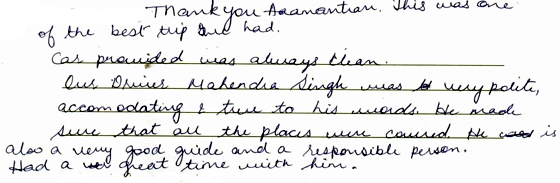 Thank you Aramantian. This was one
of the best trip I've had.
Car provided was always clean.
Our Driver Mahendra Singh was very polite,
accomodating & true to his words. He made
sure that all the places were covered He is
also a very good guide and a responsible person.
Had a great time with him.